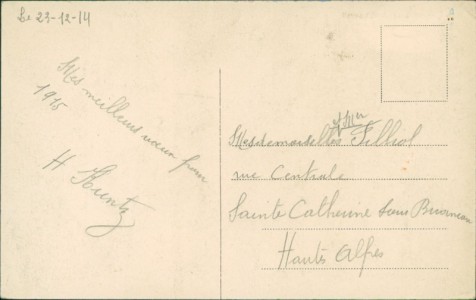 Le 23-12-14
Mes meilleurs vœux pour
1915
H Kuntz
et Mr
Mesdemoiselles Filhol
rue Centrale
Sainte Catherine sous Briancon
Hautes Alpes